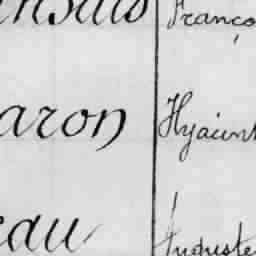 nsais Franço
aron Hyacint
eau Auguste